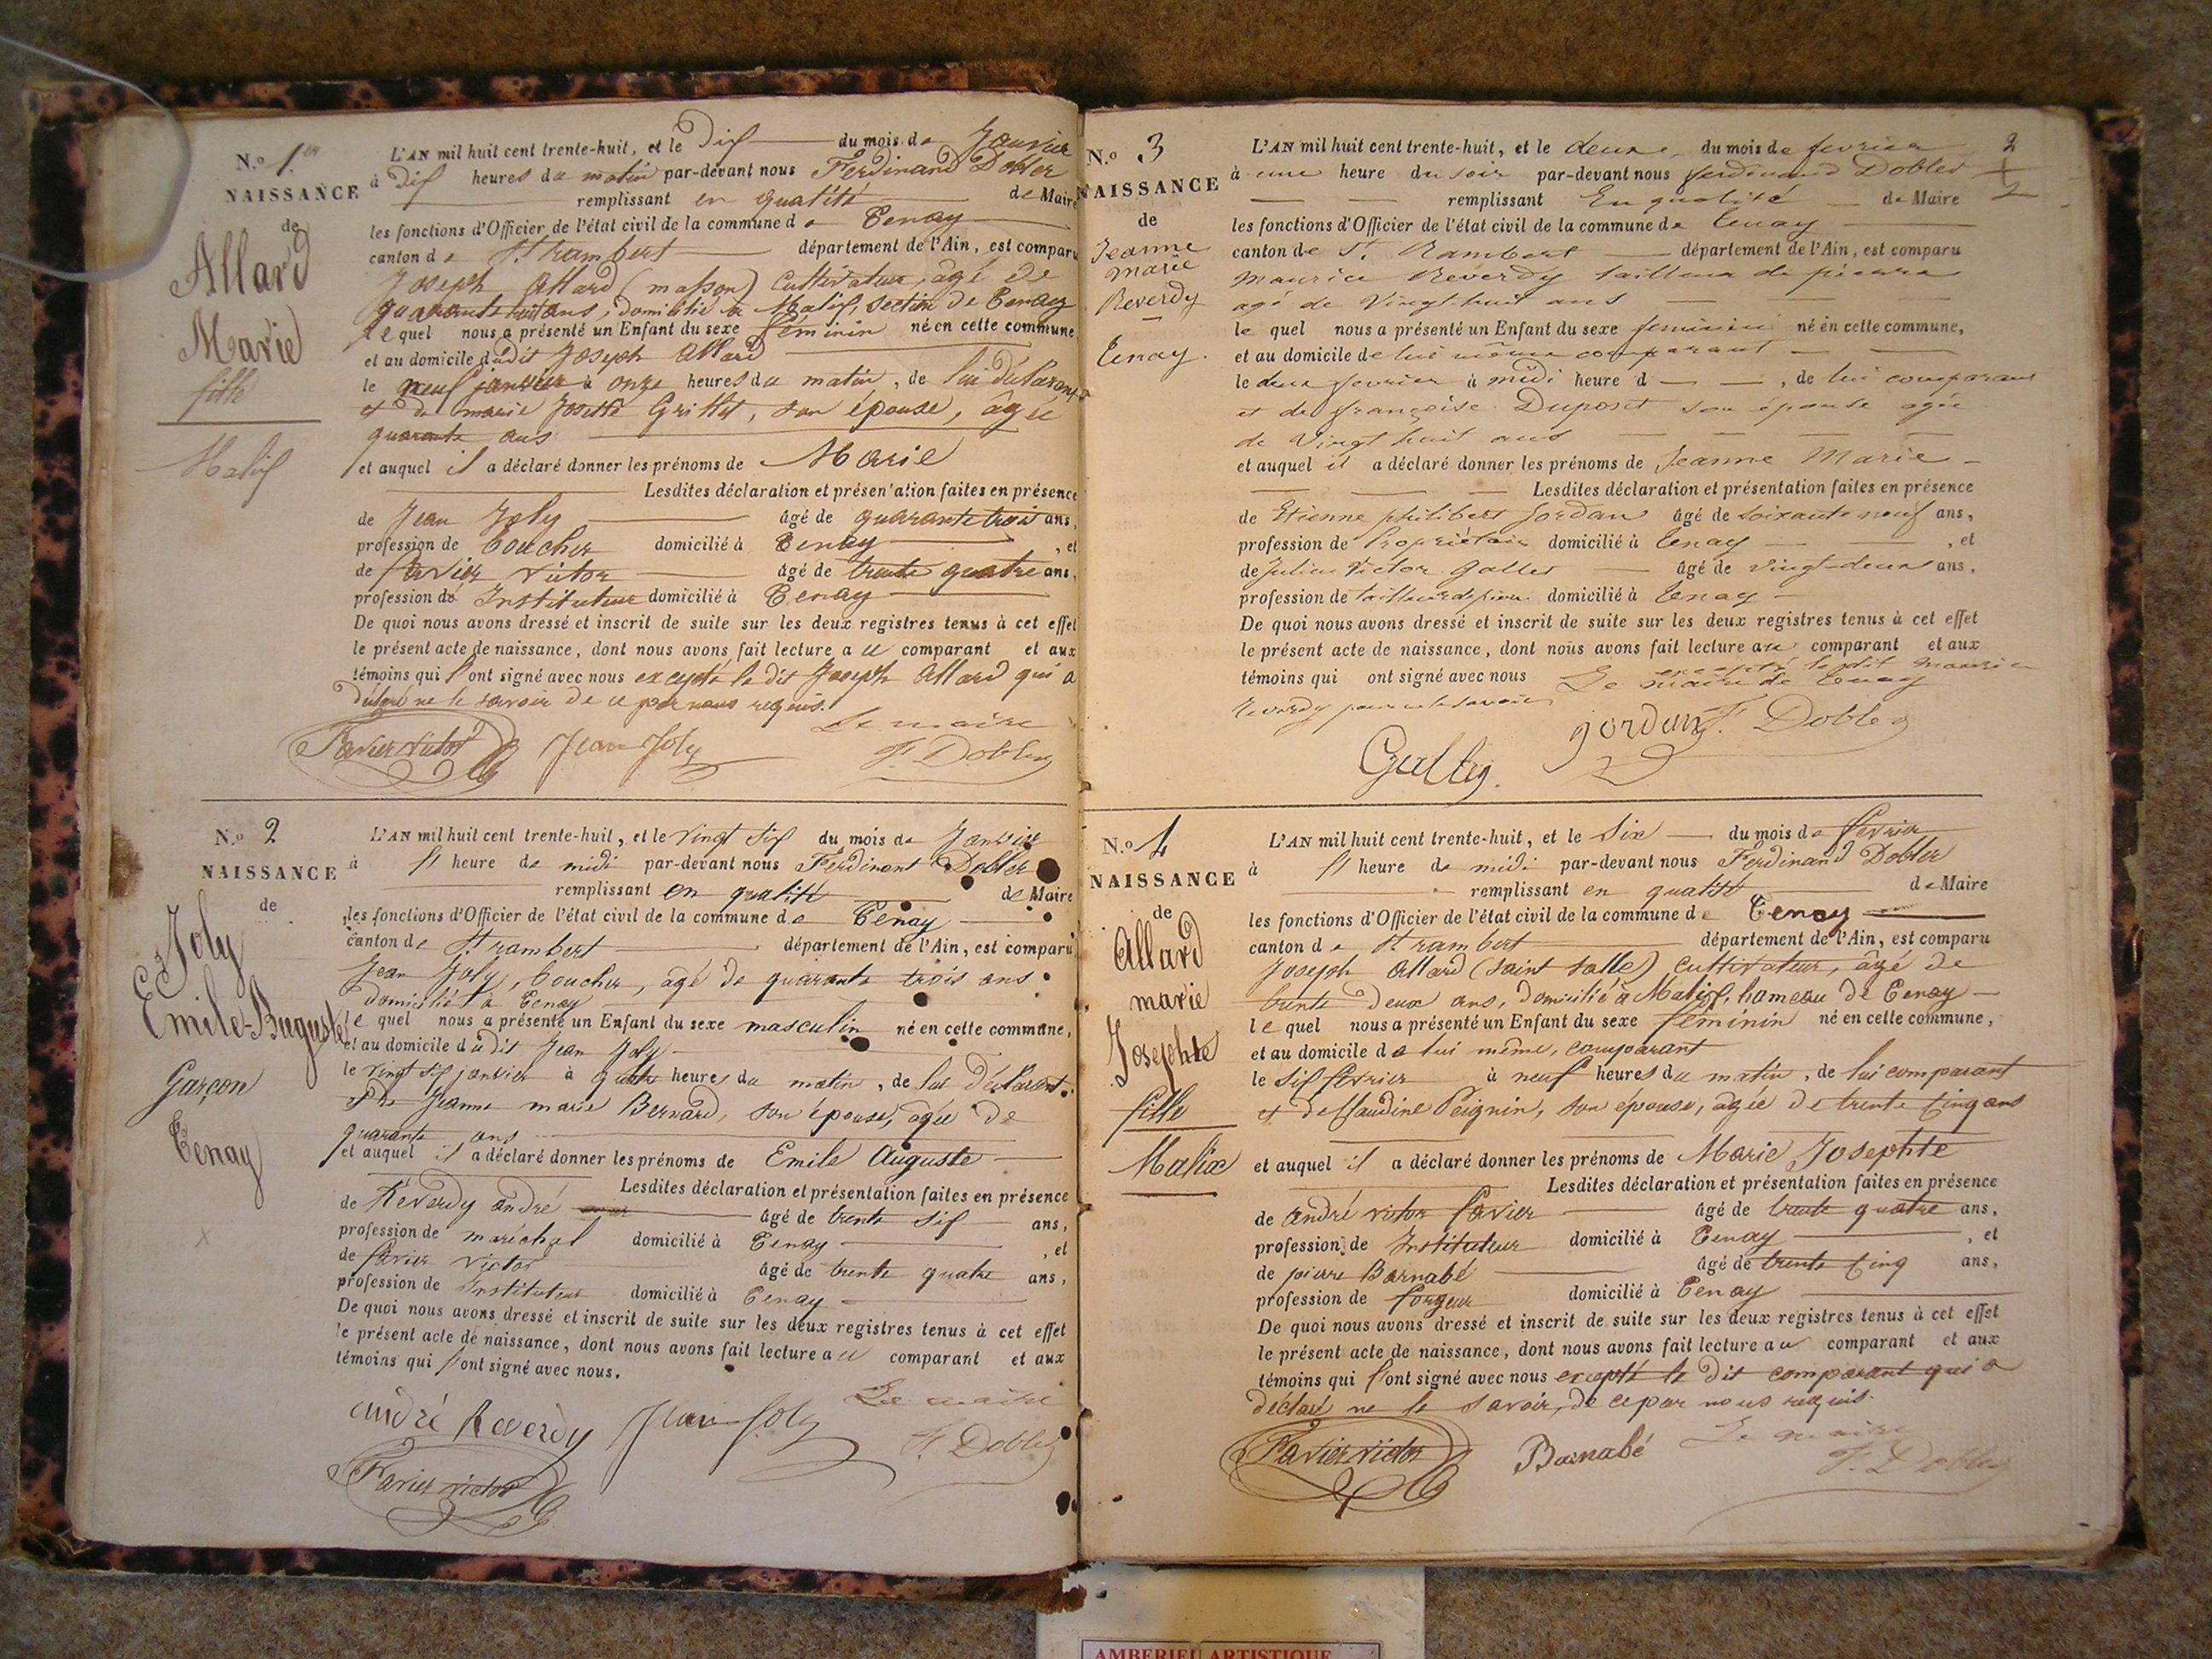 N.º 1.er
NAISSANCE
de
Allard
Marie
fille
Malif
L'AN mil huit cent trente-huit, et le Dix du mois de Janvier
à Dix heures du matin par-devant nous Ferdinand Dobler
remplissant en qualité de Maire
les fonctions d'Officier de l'état civil de la commune de Tenay
canton de St rambert département de l'Ain, est comparu
Joseph Allard (masson) Cultivateur, âgé de
quarante huit ans, domicilié à Malix, section de Tenay
le quel nous a présenté un Enfant du sexe féminin né en cette commune
et au domicile dudit Joseph Allard
le neuf janvier à onze heures du matin, de lui déclarant
et de marie Josette Grillet, son épouse, âgée
quarante ans
et auquel il a déclaré donner les prénoms de Marie
Lesdites déclaration et présentation faites en présence
de Jean Joly âgé de quarante trois ans,
profession de boucher domicilié à Tenay, et
de favier victor âgé de trente quatre ans,
profession de Instituteur domicilié à Tenay
De quoi nous avons dressé et inscrit de suite sur les deux registres tenus à cet effet
le présent acte de naissance, dont nous avons fait lecture au comparant et aux
témoins qui l'ont signé avec nous excepté le dit Joseph Allard qui a
déclaré ne le savoir de ce par nous requis.
Le maire
Favier victor Jean Joly F. Dobler
N.º 2
NAISSANCE
de
Joly
Emile-Auguste
Garçon
Tenay
L'AN mil huit cent trente-huit, et le vingt six du mois de Janvier
à l'heure de midi par-devant nous Ferdinant Dobler
remplissant en qualité de Maire
les fonctions d'Officier de l'état civil de la commune de Tenay
canton de St rambert département de l'Ain, est comparu
Jean Joly, boucher, agé de quarante trois ans
domicilié à Tenay
le quel nous a présenté un Enfant du sexe masculin né en cette commune,
et au domicile dudit Jean Joly
le vingt six janvier à quatre heures du matin, de lui déclarant
et de Jeanne marie Bernard, son épouse, agée de
quarante ans
et auquel il a déclaré donner les prénoms de Emile Auguste
Lesdites déclaration et présentation faites en présence
de Réverdy andré âgé de trente six ans,
profession de maréchal domicilié à Tenay, et
de favier victor âgé de trente quatre ans,
profession de Instituteur domicilié à Tenay
De quoi nous avons dressé et inscrit de suite sur les deux registres tenus à cet effet
le présent acte de naissance, dont nous avons fait lecture au comparant et aux
témoins qui l'ont signé avec nous.
Le maire
andré Reverdy Jean Joly F. Dobler
Favier victor
2
N.º 3
NAISSANCE
de
Jeanne
Marie
Reverdy
Tenay.
L'AN mil huit cent trente-huit, et le deux du mois de fevrier
à une heure du soir par-devant nous ferdinand Dobler
remplissant En qualité de Maire
les fonctions d'Officier de l'état civil de la commune de tenay
canton de St. Rambert département de l'Ain, est comparu
maurice Reverdy tailleur de pierre
agé de Vingt huit ans
le quel nous a présenté un Enfant du sexe feminin né en cette commune,
et au domicile de lui même comparant
le deux fevrier à midi heure d, de lui comparant
et de françoise Dupont son épouse agée
de Vingt huit ans
et auquel il a déclaré donner les prénoms de Jeanne Marie
Lesdites déclaration et présentation faites en présence
de Etienne philibert Jordan âgé de soixante neuf ans,
profession de Propriétaire domicilié à tenay, et
de Julien Victor Gallet âgé de vingt-deux ans,
profession de tailleur de pierre domicilié à tenay
De quoi nous avons dressé et inscrit de suite sur les deux registres tenus à cet effet
le présent acte de naissance, dont nous avons fait lecture au comparant et aux
témoins qui ont signé avec nous excepté le dit maurice
Le maire de tenay
Reverdy pour ne le savoir
jordan F. Dobler
N.º 4
NAISSANCE
de
Allard
marie
Josephte
fille
Malix
L'AN mil huit cent trente-huit, et le Six du mois de fevrier
à l'heure de midi par-devant nous Ferdinand Dobler
remplissant en qualité de Maire
les fonctions d'Officier de l'état civil de la commune de Tenay
canton de St rambert département de l'Ain, est comparu
Joseph Allard (saint salle) cultivateur, âgé de
trente deux ans, domicilié à Malix, hameau de Tenay
le quel nous a présenté un Enfant du sexe féminin né en cette commune,
et au domicile de lui même, comparant
le six février à neuf heures du matin, de lui comparant
et de Claudine Peignin, son épouse, agée de trente cinq ans
et auquel il a déclaré donner les prénoms de Marie Josephte
Lesdites déclaration et présentation faites en présence
de andré victor favier âgé de trente quatre ans,
profession de Instituteur domicilié à Tenay, et
de pierre Barnabé âgé de trente cinq ans,
profession de forgeur domicilié à Tenay
De quoi nous avons dressé et inscrit de suite sur les deux registres tenus à cet effet
le présent acte de naissance, dont nous avons fait lecture au comparant et aux
témoins qui l'ont signé avec nous excepté le dit comparant qui a
déclaré ne le savoir, de ce par nous requis.
Le maire
Favier victor Barnabé F. Dobler
AMBERIEU ARTISTIQUE